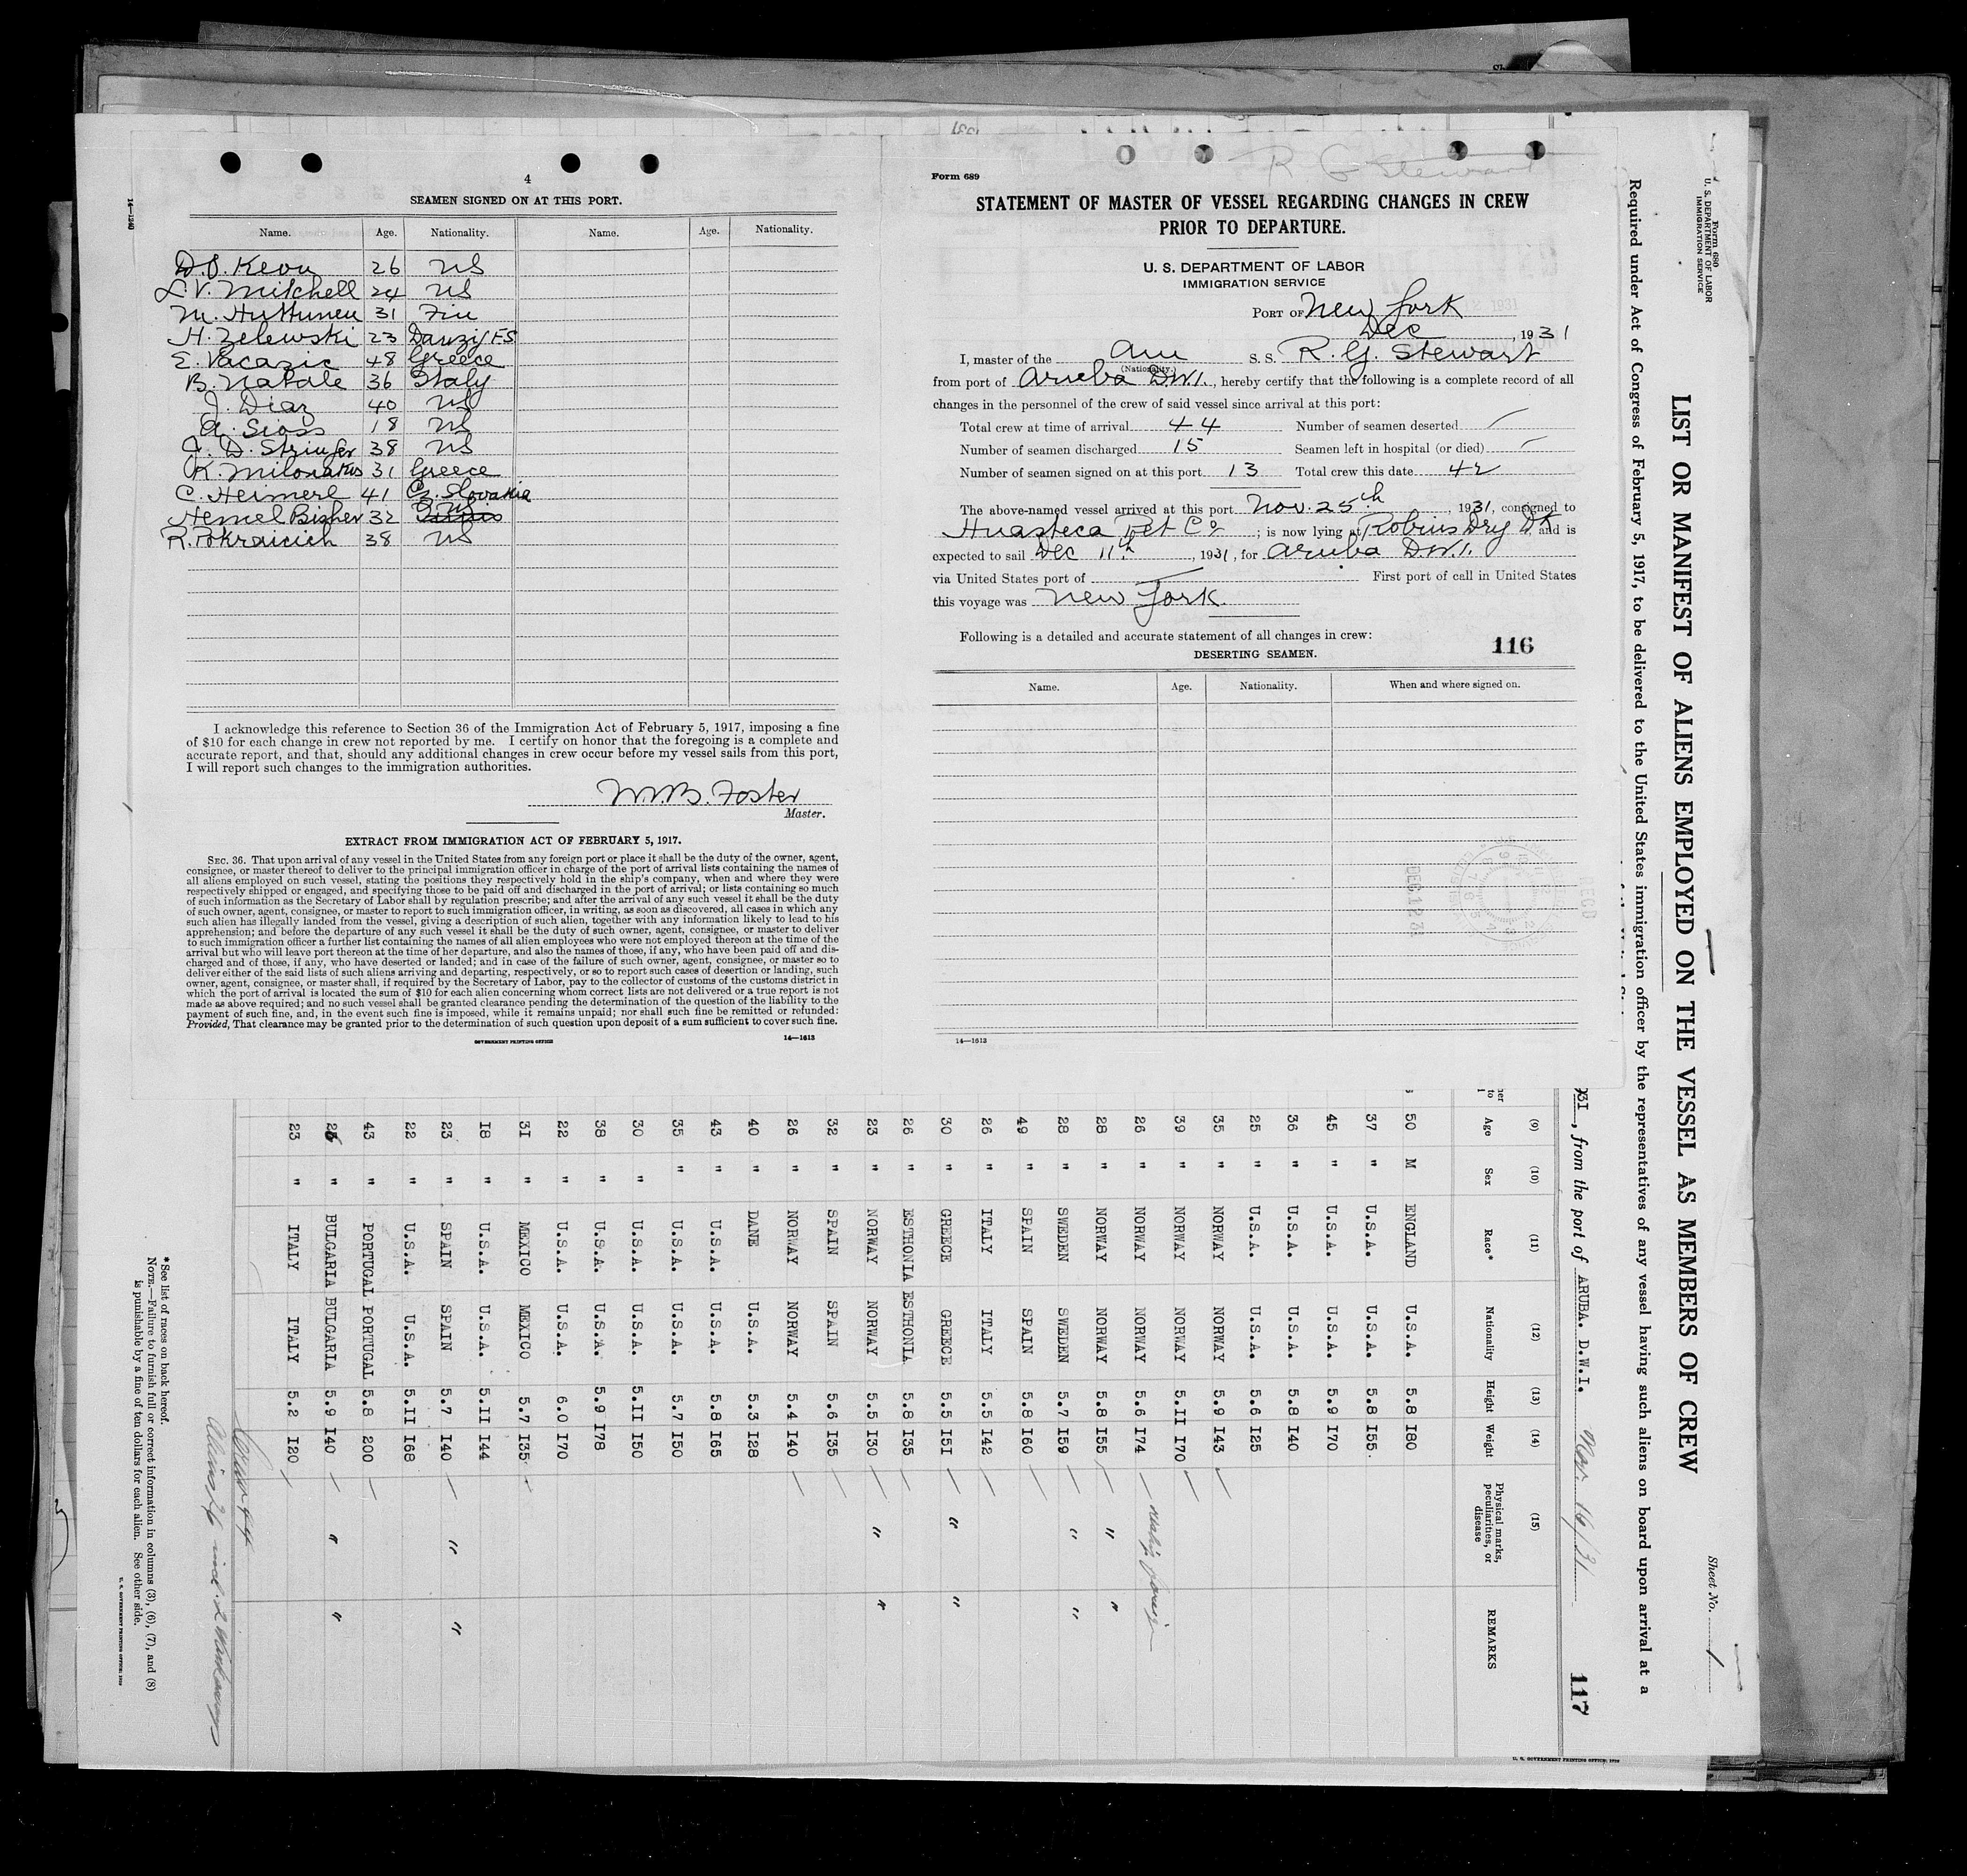 4
SEAMEN SIGNED ON AT THIS PORT.
Name. Age. Nationality. Name. Age. Nationality.
26 US
L.V. Mitchell 24 US
M. Huttunen 31 Fin
H. Zelewski 23 Danzig FS
E. Vacazic 48 Greece
B. Natale 36 Italy
J. Diaz 40 US
A. Sioss 18 US
J. D. Stringer 38 US
K. Milonakus 31 Greece
C. Heimerl 41 Cz. Slovakia
Hemel Bisher 32 US
R. Pokraicich 38 US
I acknowledge this reference to Section 36 of the Immigration Act of February 5, 1917, imposing a fine
of $10 for each change in crew not reported by me. I certify on honor that the foregoing is a complete and
accurate report, and that, should any additional changes in crew occur before my vessel sails from this port,
I will report such changes to the immigration authorities.
W.B. Foster
Master.
EXTRACT FROM IMMIGRATION ACT OF FEBRUARY 5, 1917.
SEC. 36. That upon arrival of any vessel in the United States from any foreign port or place it shall be the duty of the owner, agent,
consignee, or master thereof to deliver to the principal immigration officer in charge of the port of arrival lists containing the names of
all aliens employed on such vessel, stating the positions they respectively hold in the ship's company, when and where they were
respectively shipped or engaged, and specifying those to be paid off and discharged in the port of arrival; or lists containing so much
of such information as the Secretary of Labor shall by regulation prescribe; and after the arrival of any such vessel it shall be the duty
of such owner, agent, consignee, or master to report to such immigration officer, in writing, as soon as discovered, all cases in which any
such alien has illegally landed from the vessel, giving a description of such alien, together with any information likely to lead to his
apprehension; and before the departure of any such vessel it shall be the duty of such owner, agent, consignee, or master to deliver
to such immigration officer a further list containing the names of all alien employees who were not employed thereon at the time of the
arrival but who will leave port thereon at the time of her departure, and also the names of those, if any, who have been paid off and dis-
charged and of those, if any, who have deserted or landed; and in case of the failure of such owner, agent, consignee, or master so to
deliver either of the said lists of such aliens arriving and departing, respectively, or so to report such cases of desertion or landing, such
owner, agent, consignee, or master shall, if required by the Secretary of Labor, pay to the collector of customs of the customs district in
which the port of arrival is located the sum of $10 for each alien concerning whom correct lists are not delivered or a true report is not
made as above required; and no such vessel shall be granted clearance pending the determination of the question of the liability to the
payment of such fine, and, in the event such fine is imposed, while it remains unpaid; nor shall such fine be remitted or refunded:
Provided, That clearance may be granted prior to the determination of such question upon deposit of a sum sufficient to cover such fine.
GOVERNMENT PRINTING OFFICE 14—1613
R G Stewart
Form 689
STATEMENT OF MASTER OF VESSEL REGARDING CHANGES IN CREW
PRIOR TO DEPARTURE.
U. S. DEPARTMENT OF LABOR
IMMIGRATION SERVICE
PORT OF New York
Dec , 1931
I, master of the Am S. S. R. G. Stewart
(Nationality.)
from port of Aruba D.W.I., hereby certify that the following is a complete record of all
changes in the personnel of the crew of said vessel since arrival at this port:
Total crew at time of arrival 44 Number of seamen deserted —
Number of seamen discharged 15 Seamen left in hospital (or died) —
Number of seamen signed on at this port 13 Total crew this date 42
The above-named vessel arrived at this port Nov. 25th, 1931, consigned to
Huasteca Pet Co; is now lying at Robins Dry Dk and is
expected to sail Dec 11th, 1931, for Aruba D.W.I.
via United States port of — First port of call in United States
this voyage was New York.
Following is a detailed and accurate statement of all changes in crew:
116
DESERTING SEAMEN.
Name. Age. Nationality. When and where signed on.
14—1613
14—1240
Form 680
U. S. DEPARTMENT OF LABOR
IMMIGRATION SERVICE
Sheet No. 1
LIST OR MANIFEST OF ALIENS EMPLOYED ON THE VESSEL AS MEMBERS OF CREW
Required under Act of Congress of February 5, 1917, to be delivered to the United States immigration officer by the representatives of any vessel having such aliens on board upon arrival at a
931, from the port of ARUBA. D.W.I. Nov. 16/31
117
(9) (10) (11) (12) (13) (14) (15)
Age Sex Race* Nationality Height Weight Physical marks, peculiarities, or disease REMARKS
50 M ENGLAND U.S.A. 5.8 I80
37 " U.S.A. U.S.A. 5.8 I55.
45 " U.S.A. U.S.A. 5.9 I70
36 " U.S.A. U.S.A. 5.8 I40
25 " U.S.A. U.S.A. 5.6 I25
35 " NORWAY NORWAY 5.9 I43
39 " NORWAY NORWAY 5.II I70
26 " NORWAY NORWAY 5.6 I74
28 " NORWAY NORWAY 5.8 I55 " "
28 " SWEDEN SWEDEN 5.7 I59 " "
49 SPAIN SPAIN 5.8 I60
26 " ITALY ITALY 5.5 I42
30 " GREECE GREECE 5.5 I5I " "
26 " ESTHONIA ESTHONIA 5.8 I35
23 " NORWAY NORWAY 5.5 I30 " "
32 " SPAIN SPAIN 5.6 I35
26 " NORWAY NORWAY 5.4 I40
40 " DANE U.S.A. 5.3 I28
43 " U.S.A. U.S.A. 5.8 I65
35 " U.S.A. U.S.A. 5.7 I50
30 " U.S.A. U.S.A. 5.II I50
38 " U.S.A. U.S.A. 5.9 I78
22 " U.S.A. U.S.A. 6.0 I70
3I " MEXICO MEXICO 5.7 I35
I8 " U.S.A. U.S.A. 5.II I44
23 " SPAIN SPAIN 5.7 I40 " "
22 " U.S.A. U.S.A. 5.II I68
43 " PORTUGAL PORTUGAL 5.8 200
26 " BULGARIA BULGARIA 5.9 I40 " "
23 " ITALY ITALY 5.2 I20
Crew 44
* See list of races on back hereof.
NOTE.—Failure to furnish full or correct information in columns (3), (6), (7), and (8)
is punishable by a fine of ten dollars for each alien. See other side.
U. S. GOVERNMENT PRINTING OFFICE: 1930